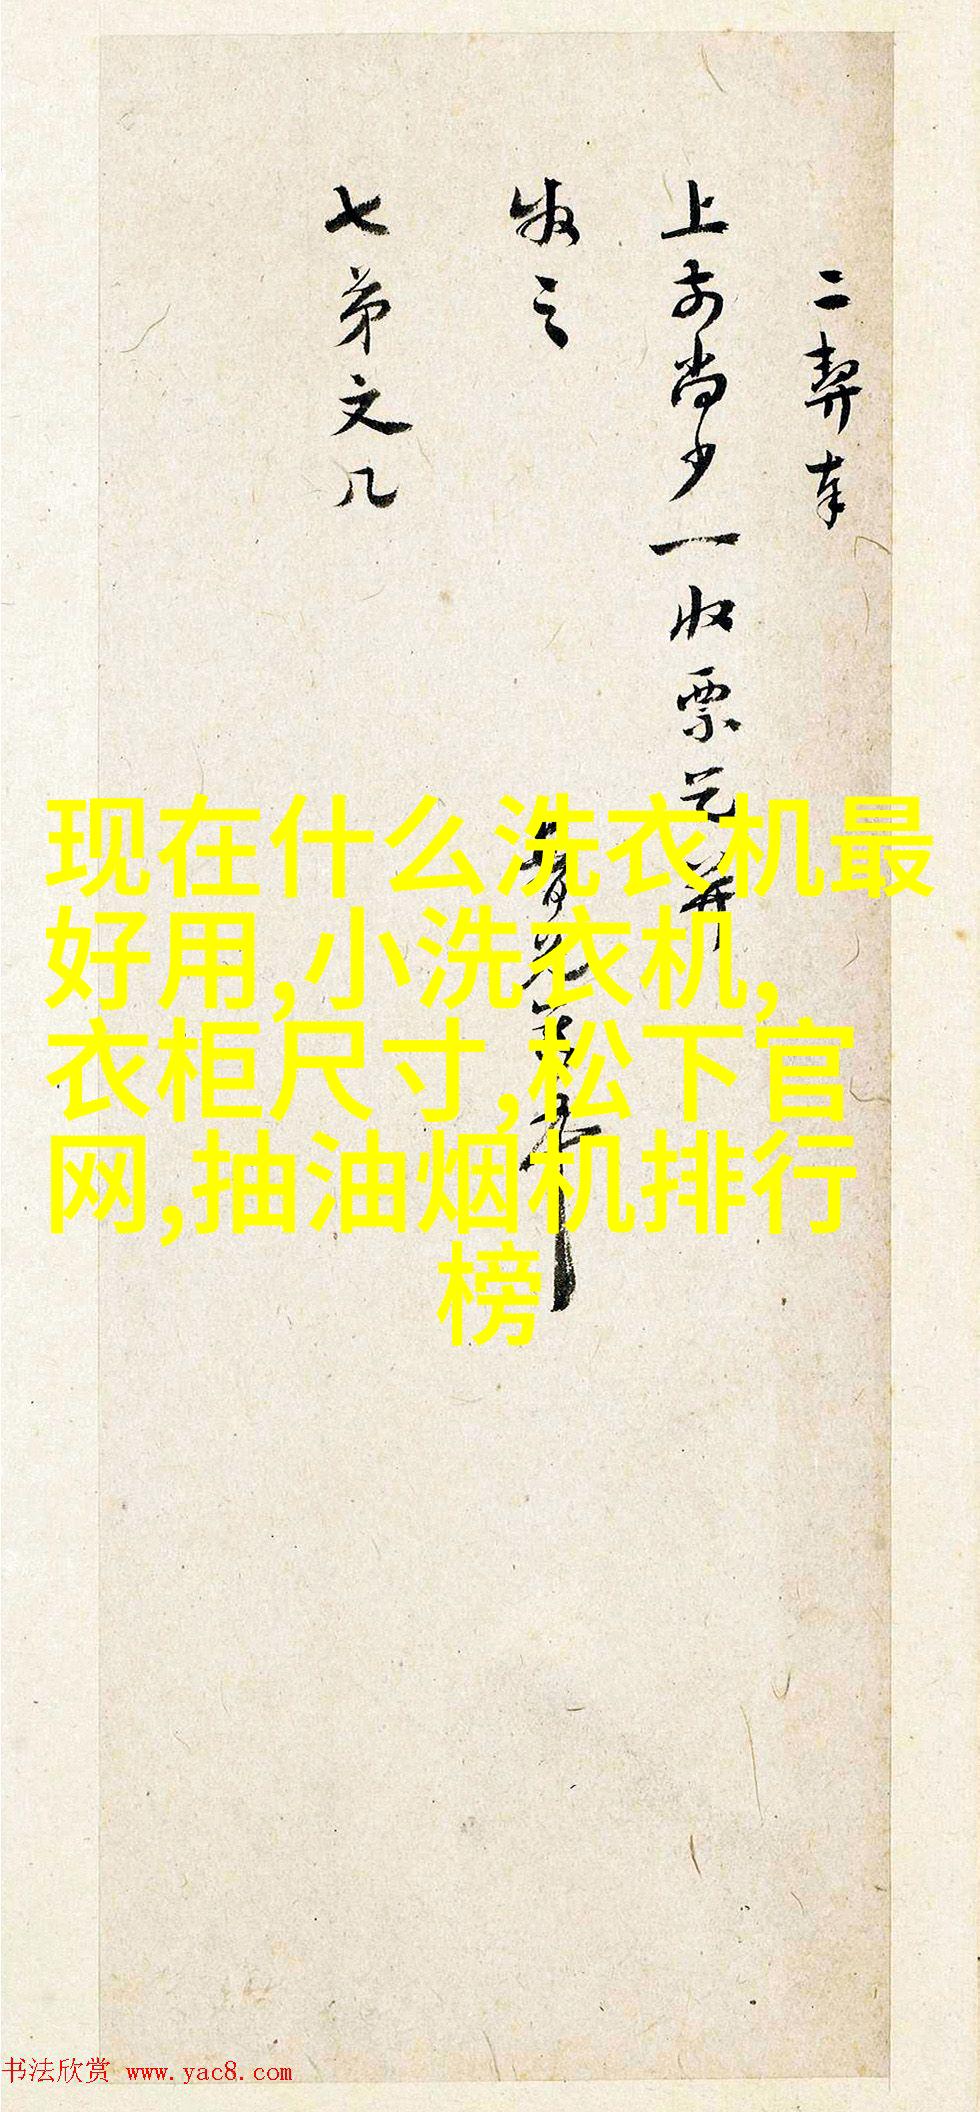 二契奉
上前尚少一收票元并
收之
七弟文几
现在什么洗衣机最
好用,小洗衣机,
衣柜尺寸,松下官
网,抽油烟机排行
榜
书法欣赏 www.yac8.com